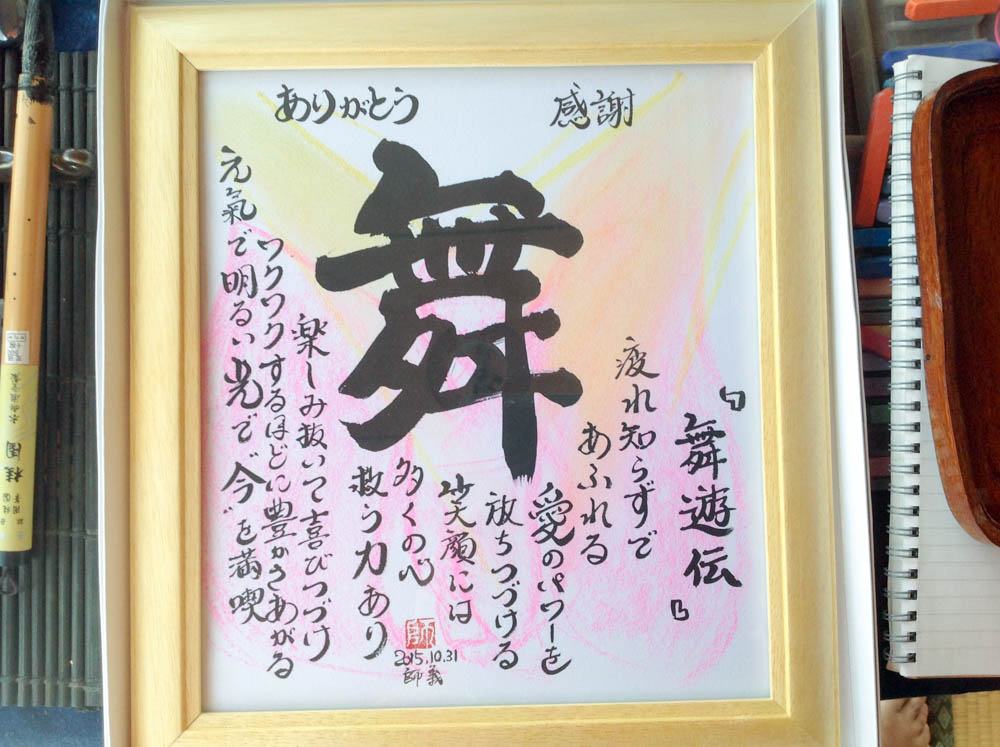 ありがとう
感謝
舞
『舞遊伝』
疲れ知らずで
あふれる
愛のパワーを
放ちつづける
笑顔には
多くの心
救う力あり
楽しみ抜いて喜びつづけ
ワクワクするほどに豊かさあがる
元氣で明るい光で“今”を満喫
師
2015.10.31
師義
桂園